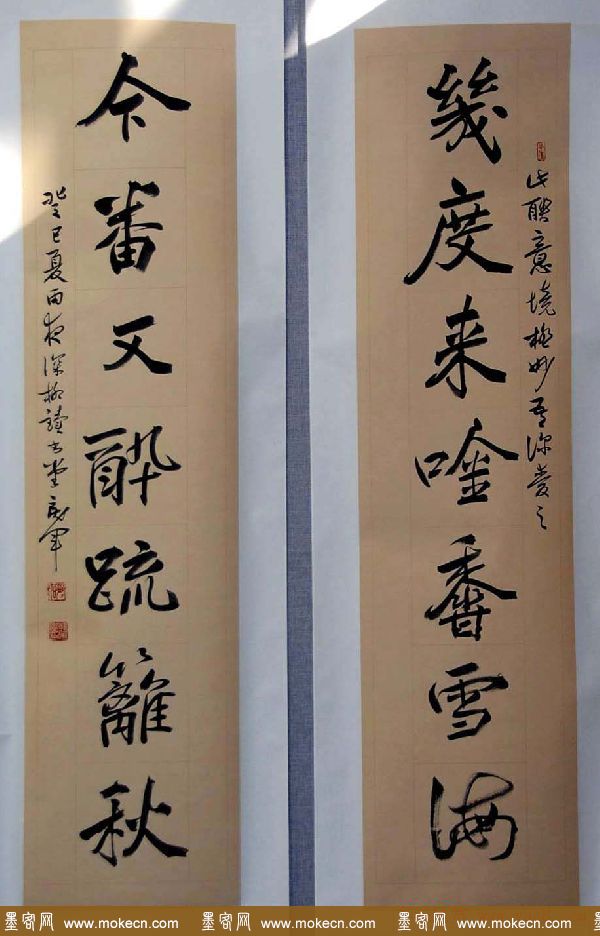 幾度来唫香雪海
此聯意境極妙吾深愛之
今番又酔疏籬秋
癸巳夏雨夜深於讀堂
墨客网 www.mokecn.com 墨客网 www.mokecn.com 墨客网 www.mokecn.com